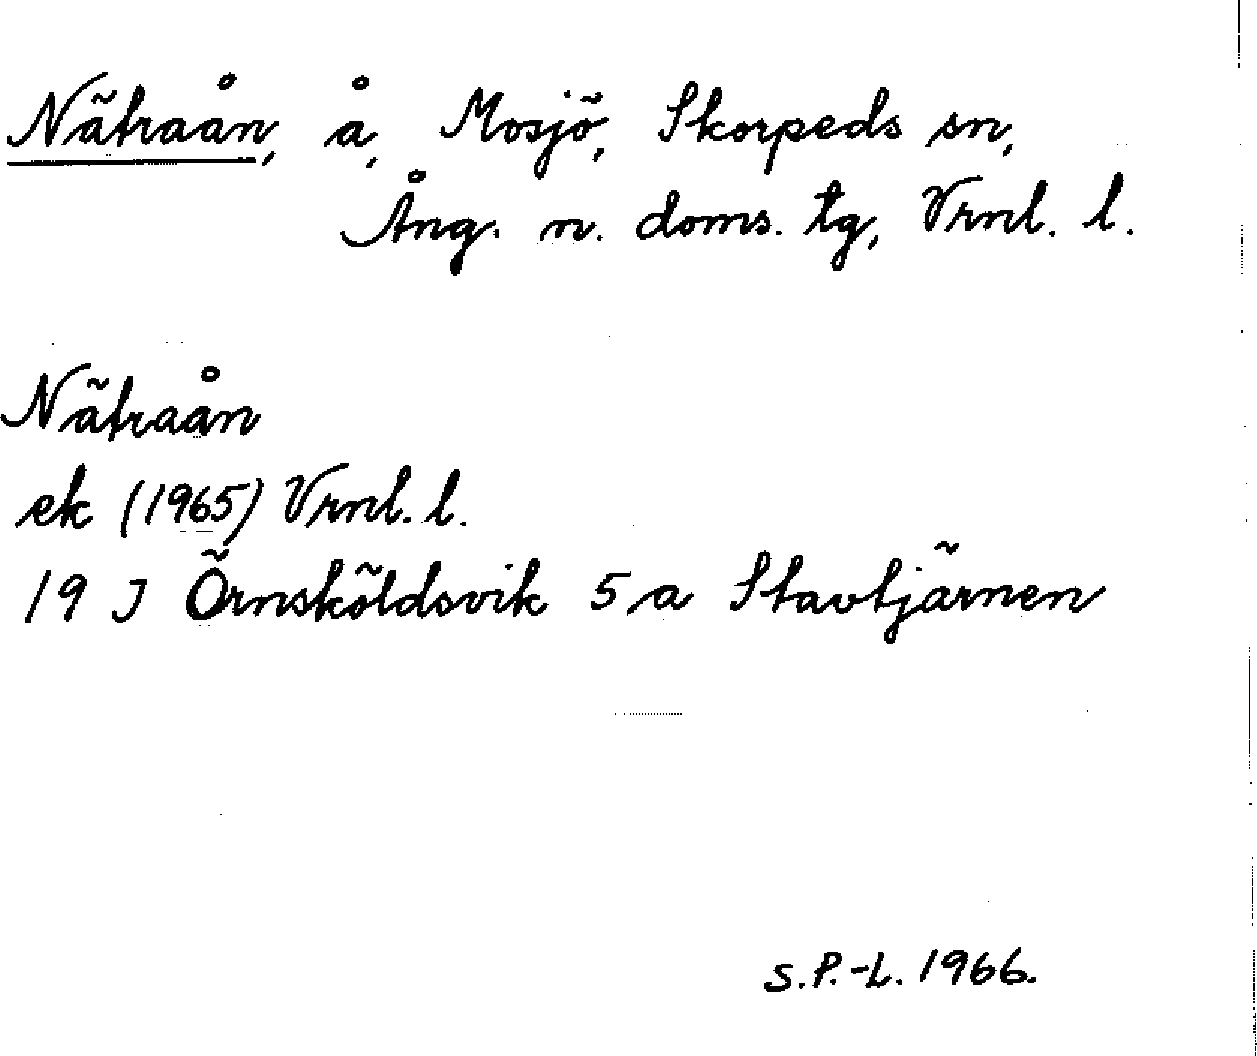 Nätraån, å, Mosjö, Skorpeds sn,
Ång. n. doms. tg, Vrnl. l.
Nätraån
ek (1965) Vrnl. l.
19 J Örnsköldsvik 5 a Stavtjärnen
S.P.-L. 1966.